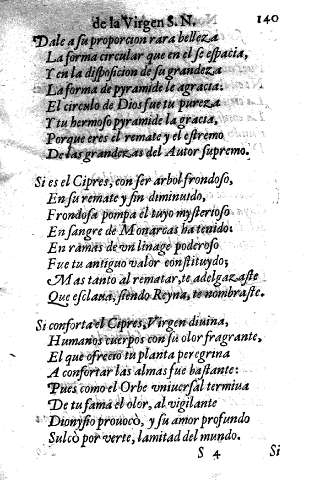 de la Virgen S. N. 140
Dale a su proporcion rara belleza
La forma circular que en el se espacia,
Y en la disposicion de su grandeza
La forma de pyramide le agracia:
El circulo de Dios fue tu pureza
Y tu hermoso pyramide la gracia,
Porque eres el remate y el estremo
De las grandezas del Autor supremo.
Si es el Cipres, con ser arbol frondoso,
En su remate y fin diminuido,
Frondosa pompa el tuyo mysterioso
En sangre de Monarcas ha tenido:
En ramas de vn linage poderoso
Fue tu antiguo valor constituydo;
Mas tanto al rematar, te adelgazaste
Que esclaua, siendo Reyna, te nombraste.
Si conforta el Cipres, Virgen diuina,
Humanos cuerpos con su olor fragrante,
El que ofrecio tu planta peregrina
A confortar las almas fue bastante:
Pues como el Orbe vniuersal termina
De tu fama el olor, al vigilante
Dionysio prouocò, y su amor profundo
Sulcò por verte, la mitad del mundo.
S 4 Si